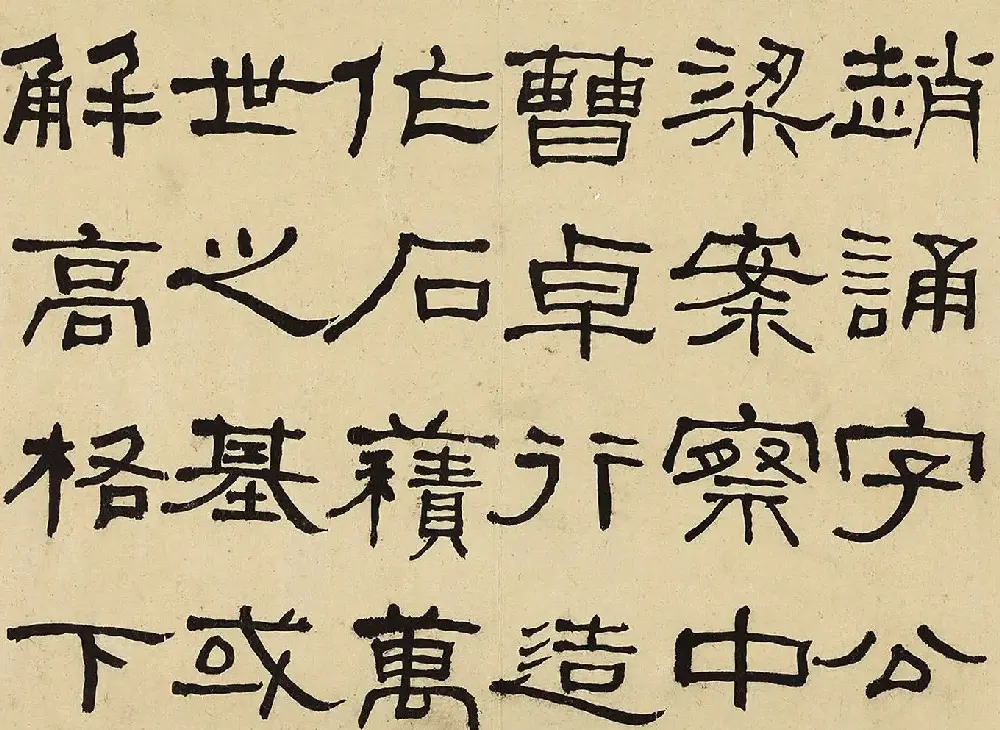 趙誦字公
梁案察中
曹卓行造
作石𧂐萬
世之基或
解高格下